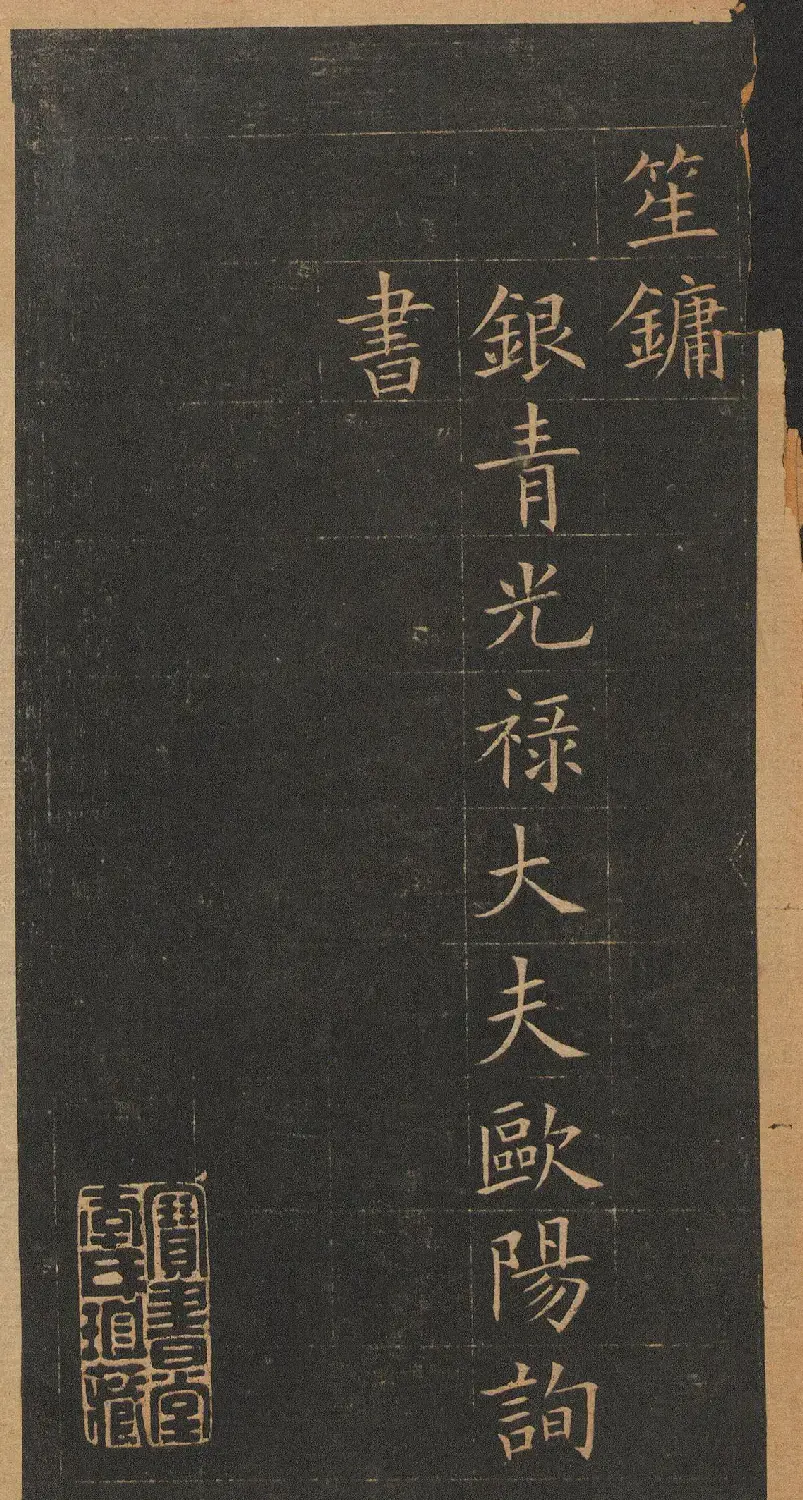 笙鏞
銀青光祿大夫歐陽詢
書